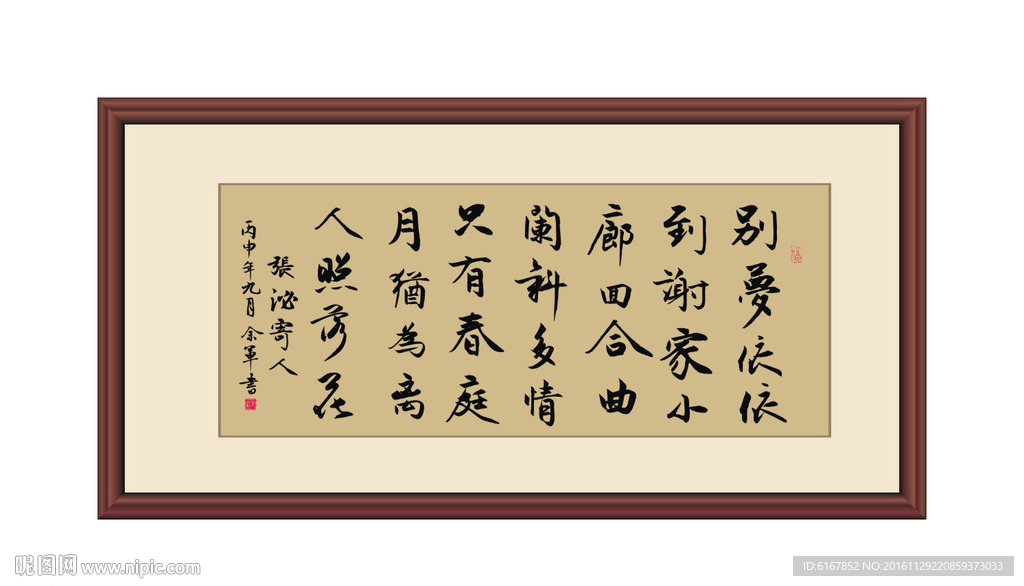 别夢依依
到謝家小
廊回合曲
闌斜多情
只有春庭
月猶為离
人照落花
張泌寄人
丙申年九月余軍書
昵图网 www.nipic.com
ID:6167852 NO:20161129220859373033